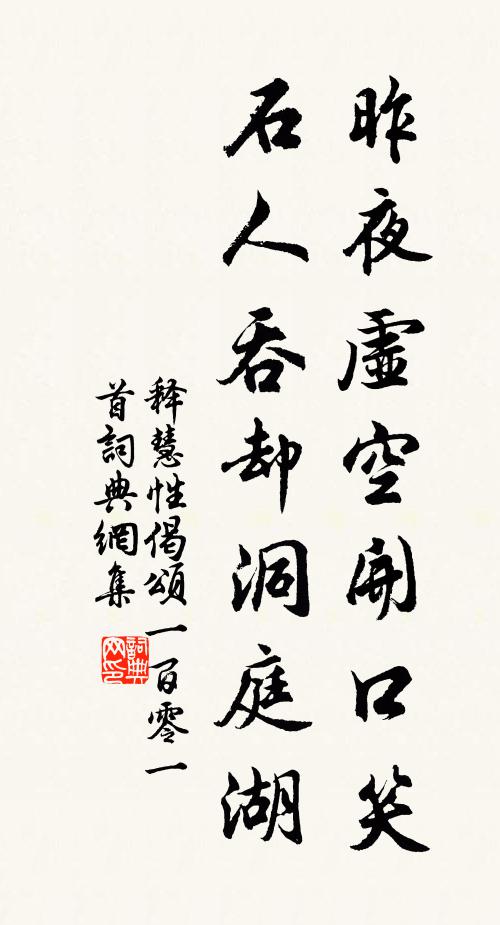 昨夜虛空開口笑
石人吞却洞庭湖
释慧性偈頌一百零一
首詞典網集
詞典網印